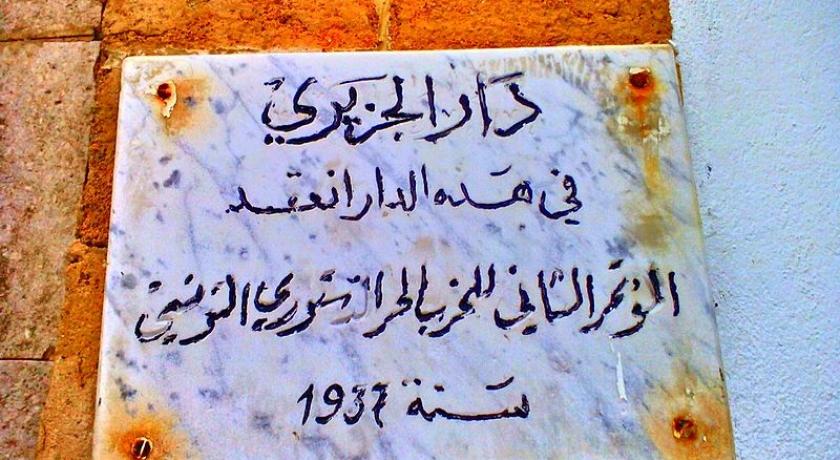 دَار الجزيَري
في هَذه الدار انعقد
المؤتمر الثاني للحزب الحر الدستوري التونسي
سَنة 1937